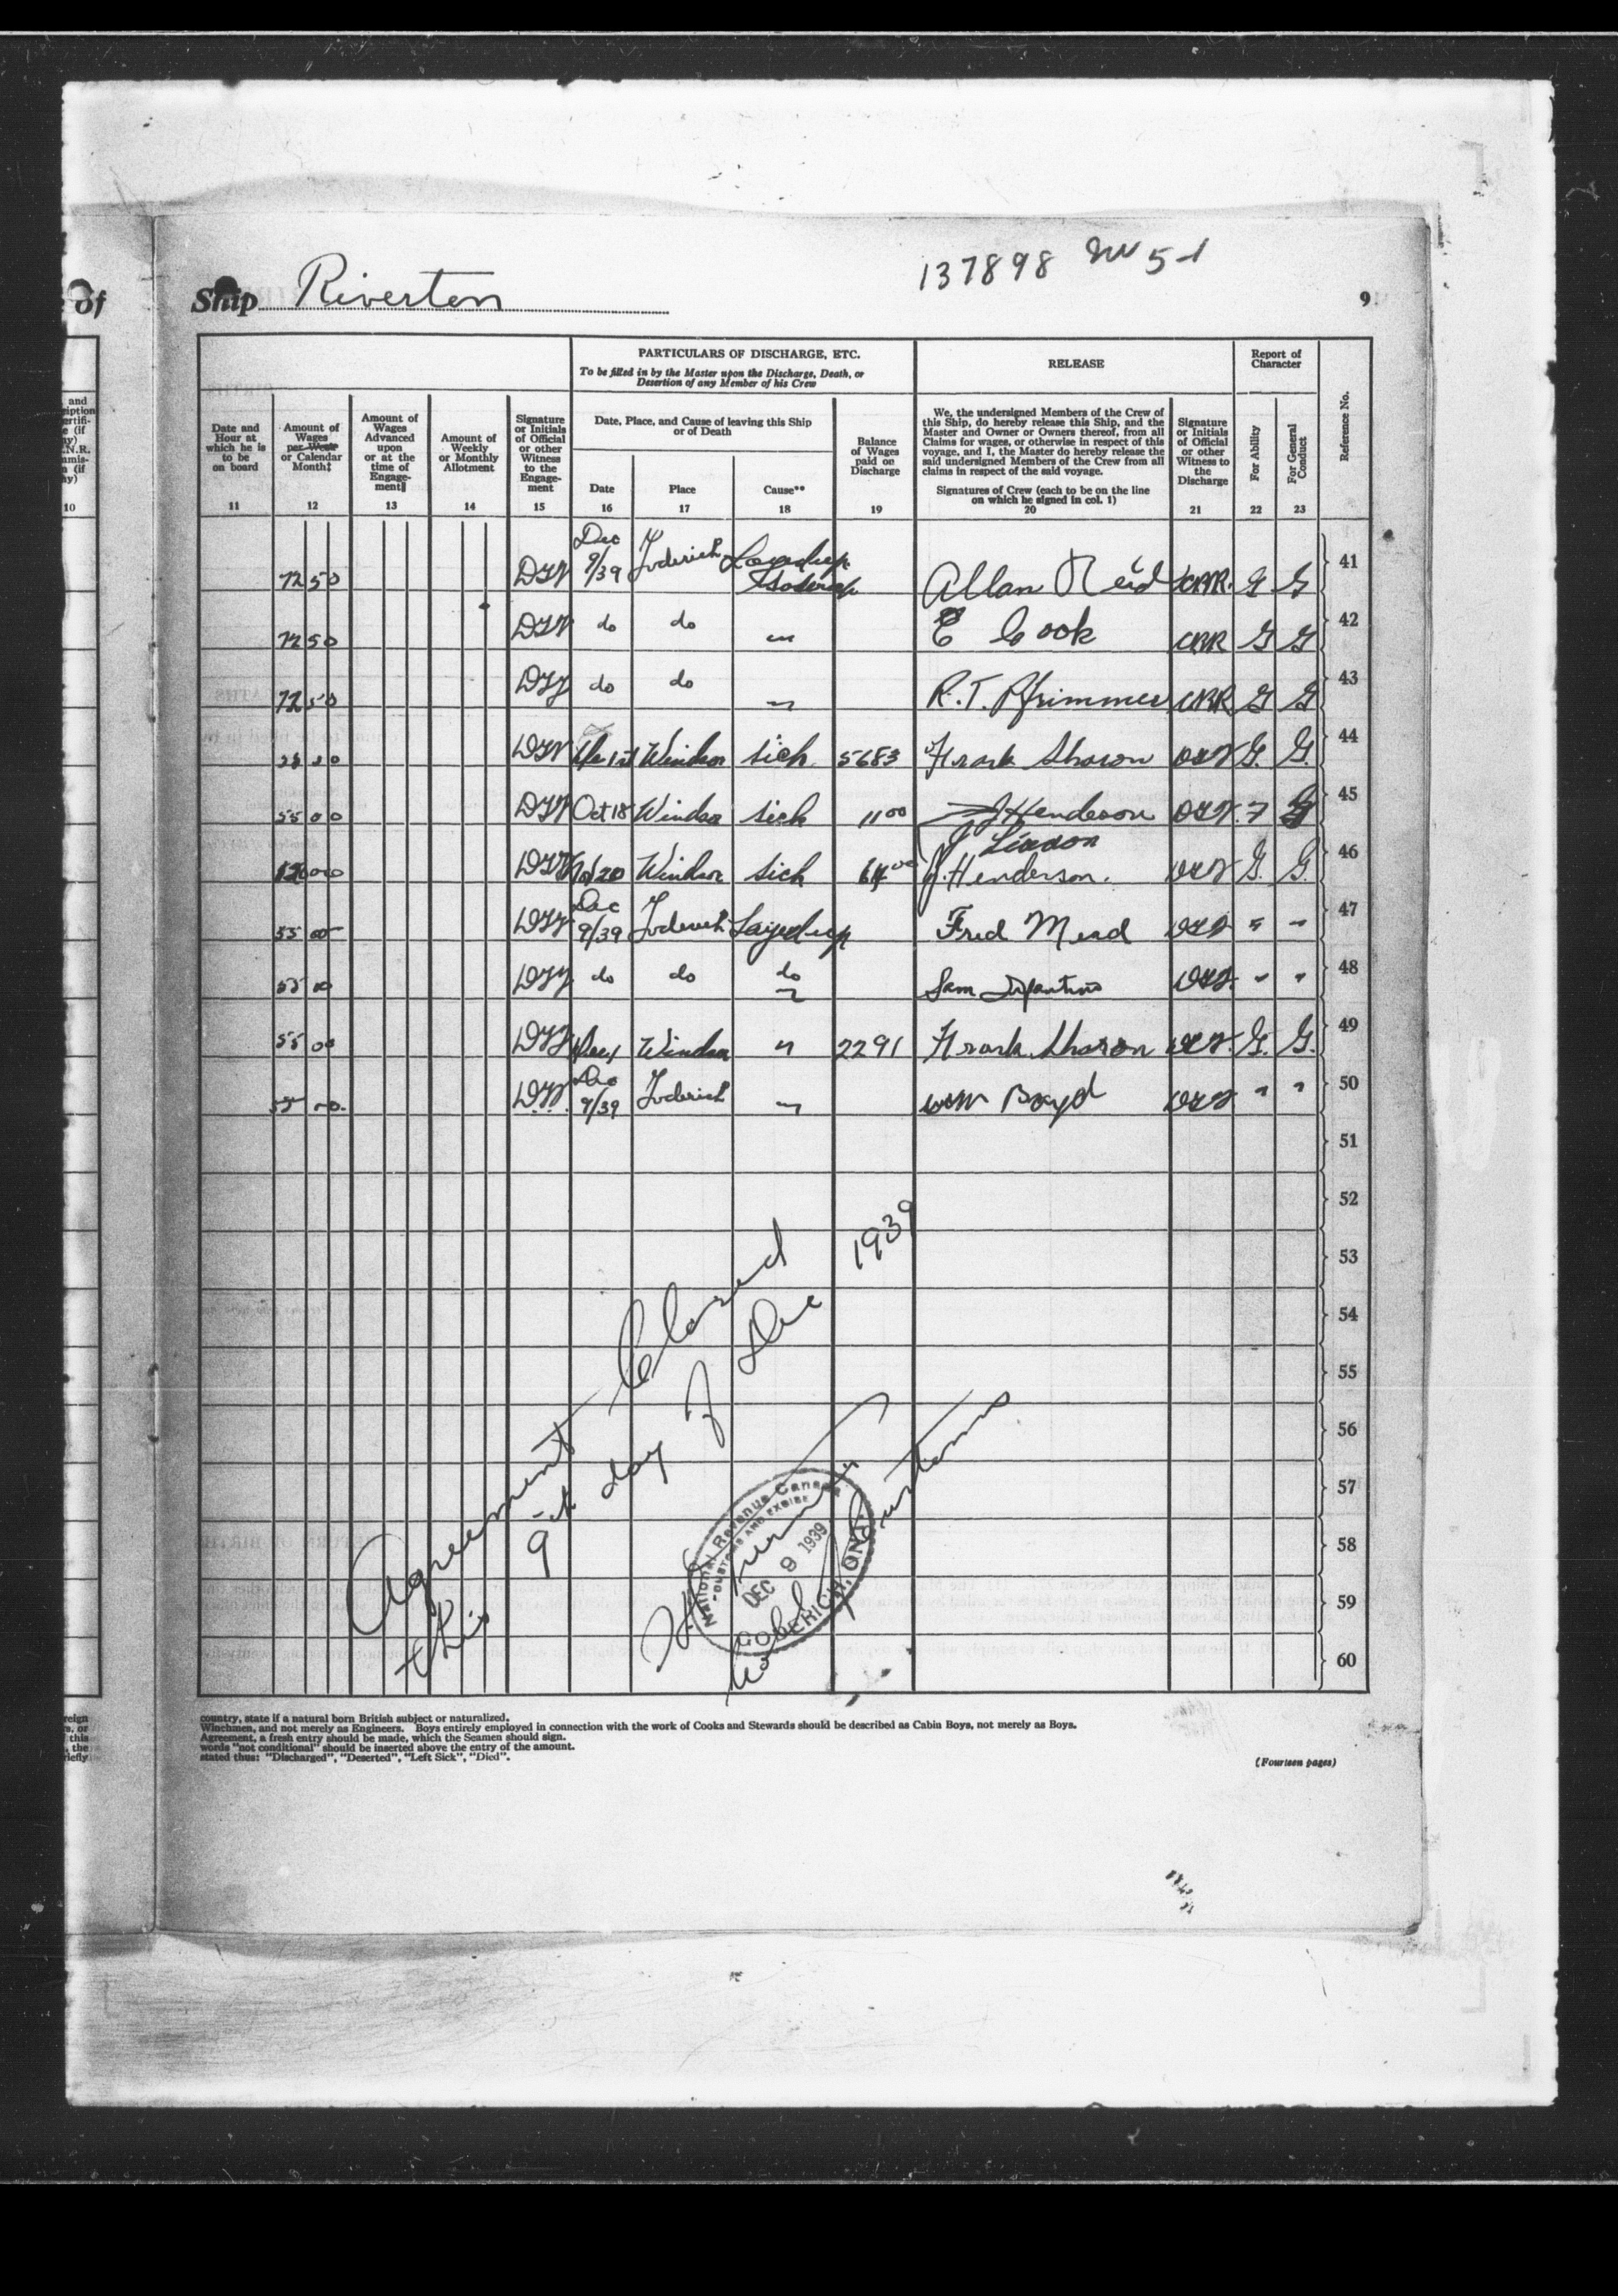 137898
of
Ship Riverton
9
PARTICULARS OF DISCHARGE, ETC.
To be filled in by the Master upon the Discharge, Death, or
Desertion of any Member of his Crew
RELEASE
Report of
Character
Reference No.
Date and
Hour at
which he is
to be
on board
11
Amount of
Wages
per Week
or Calendar
Month‡
12
Amount of
Wages
Advanced
upon
or at the
time of
Engage-
ment‖
13
Amount of
Weekly
or Monthly
Allotment
14
Signature
or Initials
of Official
or other
Witness
to the
Engage-
ment
15
Date, Place, and Cause of leaving this Ship
or of Death
Date
16
Place
17
Cause**
18
Balance
of Wages
paid on
Discharge
19
We, the undersigned Members of the Crew of
this Ship, do hereby release this Ship, and the
Master and Owner or Owners thereof, from all
Claims for wages, or otherwise in respect of this
voyage, and I, the Master do hereby release the
said undersigned Members of the Crew from all
claims in respect of the said voyage.
Signatures of Crew (each to be on the line
on which he signed in col. 1)
20
Signature
or Initials
of Official
or other
Witness to
the
Discharge
21
For Ability
22
For General
Conduct
23
10
72 50 Dec 9/39 Goderich Allan Reid G G 41
72 50 do do " E Cook G G 42
72 50 do do " R. T. Pfrimmer G G 43
Windsor sick 5683 Frank Sharon G. G. 44
55 00 Oct 18 Windsor sick 11 00 J Henderson 45
J Linson
Windsor sick 64 00 J. Henderson. G. G. 46
55 00 Dec 9/39 Goderich Layed up Fred Mead " " 47
55 00 do do do Sam Infantino " " 48
55 00 Dec 1 Windsor " 2291 Frank Sharon G. G. 49
55 00 Dec 9/39 Goderich " Wm Boyd " " 50
51
52
53
54
55
56
57
58
59
60
Agreement Closed
this 9th day of Dec 1939
National Revenue Canada
CUSTOMS AND EXCISE
DEC 9 1939
GODERICH, ONT.
Customs
country, state if a natural born British subject or naturalized.
Winchmen, and not merely as Engineers. Boys entirely employed in connection with the work of Cooks and Stewards should be described as Cabin Boys, not merely as Boys.
Agreement, a fresh entry should be made, which the Seamen should sign.
words "not conditional" should be inserted above the entry of the amount.
stated thus: "Discharged", "Deserted", "Left Sick", "Died".
(Fourteen pages)